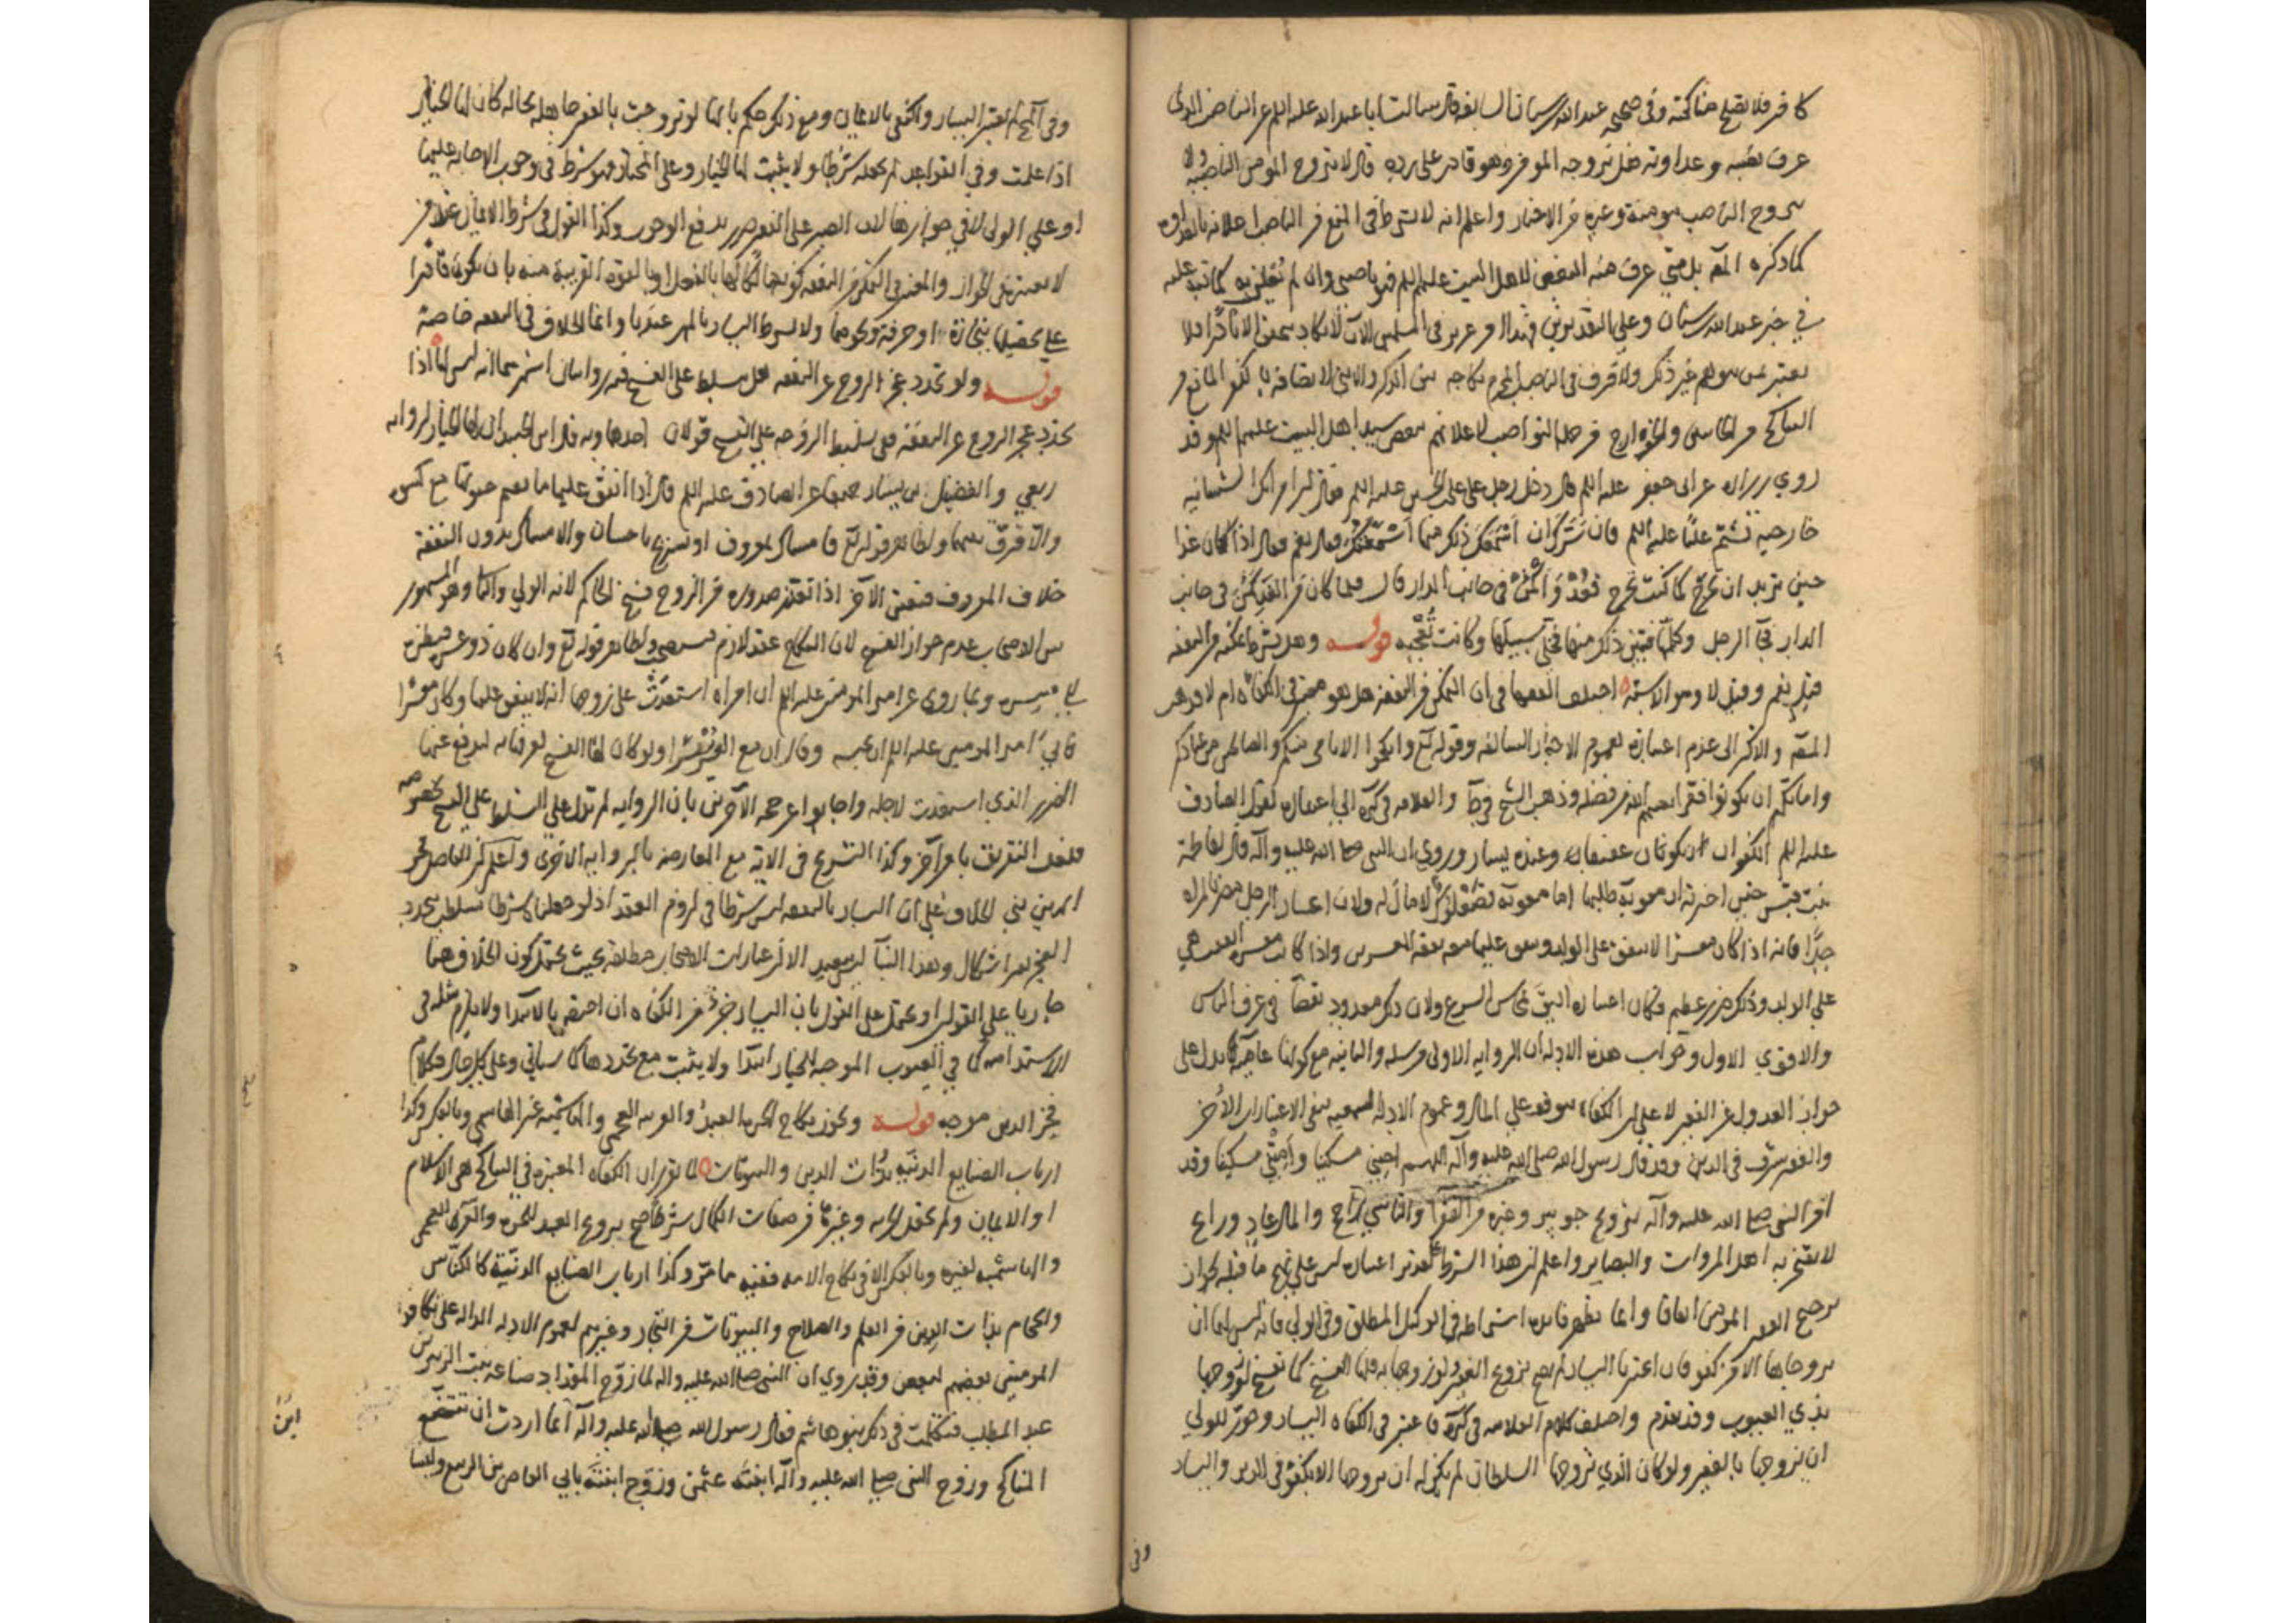 كافر فلا يصح مناكحته وفى صحيحه عبد الله بن سنان السابقه قال سالت ابا عبد الله عليه السلم عن الناصب الذى
عرف نصبه وعداوته هل نزوجه المومن وهو قادر على رده قال لا يتزوج المومن الناصبه ولا
يتزوج الناصب مومنة وغيره من الاخبار واعلم انه لا يشترط فى المنع من الناصب اعلانه بالعداوه
كما ذكره المصّ بل متى عرف منه البغض لاهل البيت عليهم السلم فهو ناصبى وان لم يعلن به كما نبه عليه
في خبر عبد الله بن سنان وعلى التقديرين فهذا امر عزيز فى المسلمين الآن لا يكاد يتفق الا نادرا فلا
يغتر بمن يتوهم غير ذلك ولا فرق فى الناصب المحرم نكاحه بين الذكر والانثى لاتصافه بالكفر المانع من
التناكح من الجانبين والخوارج من جمله النواصب لاعلانهم ببغض سيد اهل البيت عليهم السلم وقد
روي زراره عن ابى جعفر عليه السلم قال دخل رجل على على بن الحسين عليه السلم فقال له ان امراتك الشيبانيه
خارجيه تشتم عليا عليه السلم فان سَرّك ان اُسْمِعَك ذلك منها اَسْمَعْتُك فقال نعم قال اذا كان غدا
حين تريد ان تخرج كما كنت تخرج فعُدْ وَاكمُنْ فى جانب الدار قال فلما كان من الغد كَمُنَ فى جانب
الدار فجآ الرجل وكلّمها فتبيّن ذلك منها فخلّى سبيلها وكانت تُعْجِبُه قوله وهل يشترط تمكنه من النفقه
قيل نعم وقيل لا وهو الاشبه اختلف الفقها فى ان التمكن من النفقه هل هو معتبر فى الكفاه ام لا فذهب
المصّ والاكثر الى عدم اعتباره لعموم الاخبار السالفه وقوله تع وانكحوا الايامى منكم والصالحين من عبادكم
وامائكم ان يكونوا فقرا يغنهم الله من فضله وذهب الشيخ فى ط والعلامه فى كره الى اعتباره لقول الصادق
عليه السلم الكفو ان يكون عفيفا وعنده يسار وروي ان النبى صلى الله عليه وآله قال لفاطمة
بنت قيس حين اخبرته ان معويه طلبها اما معويه فصُعْلوك لا مال له ولان اعسار الرجل مضر بالمراه
جدًّا فانه اذا كان معسرا لا ينفق على الولد وينفق عليها معه نفقه المعسرين واذا كانت معسره انفقت هي
على الولد وذلك ضرر عظيم فكان اعتباره اليق بمحاسن الشرع ولان ذلك معدود نقصا فى عرف الناس
والاقوي الاول وجواب هذه الادله ان الروايه الاولى مرسله والثانيه مع كونها عاميه تدل على
جواز العدول عن الفقير لا على ان الكفاه موقوفه على المال وعموم الادله السمعيه ينفى الاعتبارات الاُخر
والفقر شرف فى الدين وقد قال رسول الله صلى الله عليه وآله اللهم احيني مسكينا وامِتْني مسكينا وقد
امر النبى صلى الله عليه وآله بتزويج جويبر وغيره من الفقرا والتاسي راجح والمال غاد ورايح
لا يفتخر به اهل المروات والبصاير واعلم ان هذا الشرط على تقدير اعتباره ليس على نهج ما قبله لجواز
تزويج الفقير المومن اتفاقا وانما تظهر فايده اشتراطه فى الوكيل المطلق وفى الولى فانه ليس لهما ان
يزوجاها الا من كفو فان اعتبرنا اليسار لم يصح تزويج الفقير ولو زوجها به فلها الفسخ كما تفسخ لو زوجها
بذي العيوب وقد تقدم واختلف كلام العلامه فى كره فاعتبر فى الكفاه اليسار وجوّز للولي
ان يزوجها بالفقير ولو كان الذي يزوجها السلطان لم يكن له ان يزوجها الا بكفو فى الدين واليسار
وفى
وفى المخ لم يعتبر اليسار واكتفى بالايمان ومع ذلك حكم بانها لو تزوجت بالفقير جاهله بحاله كان لها الخيار
اذا علمت وفي القواعد لم يجعله شرطا ولا يثبت لها الخيار وعلى المختار فهو شرط فى وجوب الاجابه عليها
او على الولى لا في جوازها لان الصبر على الفقر ضرر يدفع الوجوب وكذا القول فى شرط الايمان عند من
لا يعتبره فى الجواز والمعتبر فى التمكن من النفقه كونه مالكا لها بالفعل او بالقوه القريبة منه بان يكون قادرا
على تحصيلها بتجارة او حرفة ونحوهما ولا يشترط اليسار بالمهر عندنا وانما الخلاف فى النفقه خاصة
قوله ولو تجدد عجز الزوج عن النفقه هل تسلط على الفسخ فيه روايتان اشهرهما انه ليس لها اذا
تجدد عجز الزوج عن النفقه ففى تسلط الزوجه على الفسخ قولان احدهما وبه قال ابن الجنيد ان لها الخيار لروايه
ربعى والفضيل بن يسار جميعا عن الصادق عليه السلم قال اذا انفق عليها ما يقيم حياتها مع كسوه
والا فرق بينهما ولظاهر قوله تع فامساك بمعروف او تسريح باحسان والامساك بدون النفقة
خلاف المعروف فيتعين الآخر اذا تعذر صدوره من الزوج فسخ الحاكم لانه الولي والثانى وهو المشهور
بين الاصحاب عدم جواز الفسخ لان النكاح عقد لازم فيستصحب ولظاهر قوله تع وان كان ذو عسره فنظره
الى ميسره وبما روى عن امير المومنين عليه السلم ان امراه استعدَتْ على زوجها انه لا ينفق عليها وكان معسرا
فابى امير المومنين عليه السلم ان يحبسه وقال ان مع العسر يسرا ولو كان لها الفسخ لعرفها به ليدفع عنها
الضرر الذي استعدت لاجله واجابوا عن حجه الآخرين بان الروايه لم تدل على التسلط على الفسخ بخصوصه
فلعل التفريق بامر آخر وكذا التسريح فى الايه مع المعارضه بالروايه الاخرى واعلم ان الفاضل فخر
الدين بنى الخلاف على ان اليسار بالنفقه ليس شرطا في لزوم العقد اذ لو جعلناه شرطا تسلطت بتجدد
العجز بغير اشكال وهذا البنآ ليس بجيد الا ان عبارات الاصحاب مطلقه بحيث يحتمل كون الخلاف هنا
جاريا على القولين او يحتمل على القول بان اليسار جزء من الكفاه ان احتص بالابتدا ولا يلزم مثله فى
الاستدامه كما في العيوب الموجبه للخيار ابتدا ولا يثبت مع تجددها كما سياتي وعلى كل حال فكلام
فخر الدين موجه قوله ويجوز نكاح الحره العبد والعربيه العجمي والهاشميه غير الهاشمى وبالعكس وكذا
ارباب الصنايع الدنيه بذوات الدين والبيوتات لما تقرر ان الكفاه المعتبره في النكاح هى الاسلام
او الايمان ولم يجعل الحريه وغيرها من صفات الكمال شرطا صح تزويج العبد للحره والعربيه للعجمى
والهاشميه لغيره وبالعكس الا فى نكاح الامه ففيه ما مرّ وكذا ارباب الصنايع الدنيّة كالكناس
والحجام بذات الدين من العلم والصلاح والبيوتات من التجار وغيرهم لعموم الادله الداله على تكافو
المومنين بعضهم لبعض وقد روي ان النبى صلى الله عليه واله لما زوج المقداد ضباعه بنت الزبير بن
عبد المطلب فتكلمت فى ذلك بنو هاشم فقال رسول الله صلى الله عليه وآله انما اردت ان تتضع
المناكح وزوج النبى صلى الله عليه وآله ابنته عثمن وزوّج ابنته بابي العاص بن الربيع وليسا